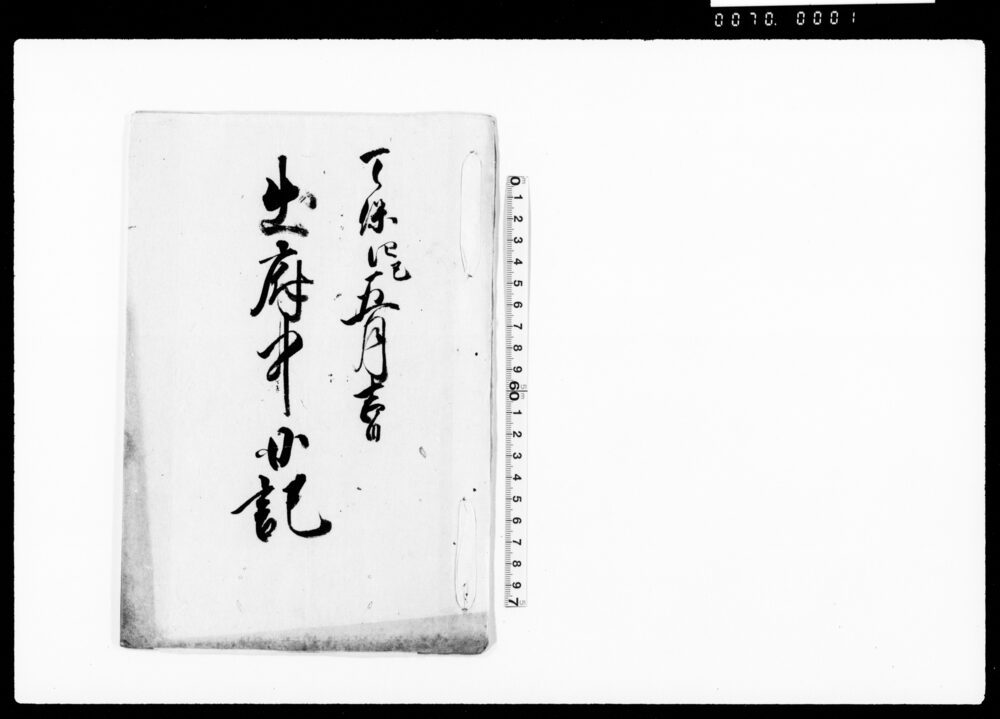 0070. 0001
天保四巳五月吉日
出府中日記
0 1 2 3 4 5 6 7 8 9 60 1 2 3 4 5 6 7 8 9 7